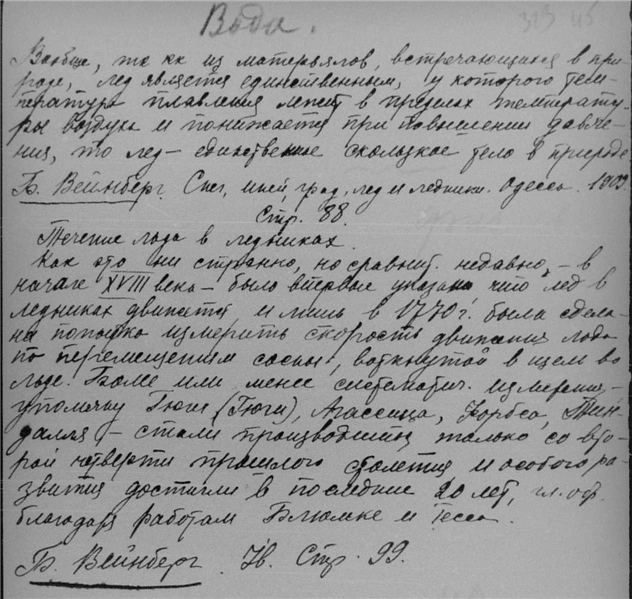 Вода.
Вообще, та кк из матерьялов, встречающихся в при-
роде, лед является единственным, у которого тем-
пература плавления лежит в пределах температу-
ры воздуха и понижается при повышении давле-
ния, то лед – единственное скользкое тело в природе
Б. Вейнберг. Снег, иней, град, лед и ледники. Одесса. 1909.
Стр. 88.
Течение льда в ледниках.
Как это ни странно, но сравнит. недавно, – в
начале XVIII века – было впервые указано что лед в
ледниках движется и лишь в 1770 г. была сдела-
на попытка измерить скорость движения льда
по перемещениям сосны, воткнутой в щель во
льде. Более или менее систематич. измерения, –
упомяну Гюги (Гюги), Агассица, Форбеса, Тин-
далля – стали производиться только со вто-
рой четверти прошлого столетия и особого ра-
звития достигли в последние 20 лет, гл. обр.
благодаря работам Блюмке и Гесса.
Б. Вейнберг. Ib. Стр. 99.